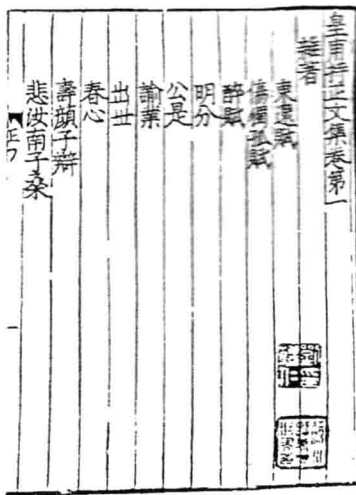 皇甫持正文集卷第一
雜著
東還賦
傷獨孤賦
醉賦
明分
公是
諭業
出世
春心
壽顔子辯
悲汝南子桑
正
一